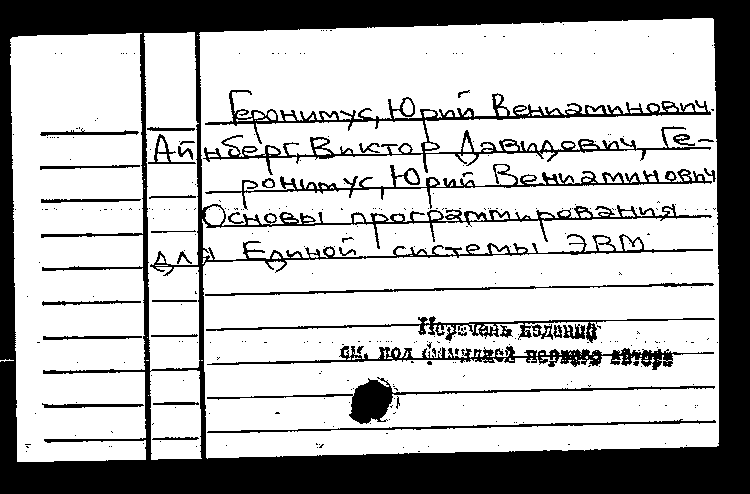 Геронимус, Юрий Вениаминович.
Айнберг, Виктор Давидович, Ге-
ронимус, Юрий Вениаминович
Основы программирования
для Единой системы ЭВМ.
Перечень изданий
см. под фамилией первого автора